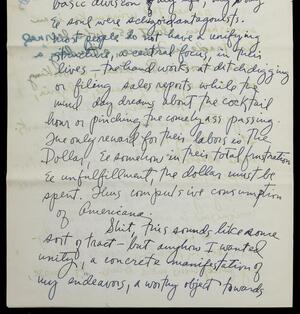 basic division
& soul were antagonists.
Most people do not have a unifying
structure, a central focus, in their
lives — the hand works at ditch digging
or filing sales reports while the
mind day dreams about the cocktail
hour or pinching the comely ass passing.
The only reward for their labors is the
Dollar, & somehow in their total frustration
& unfulfillment, the dollar must be
spent. Thus compulsive consumption
of Americana.
Shit, this sounds like some
sort of tract — but anyhow I wanted
unity, a concrete manifestation of
my endeavors, a worthy object towards